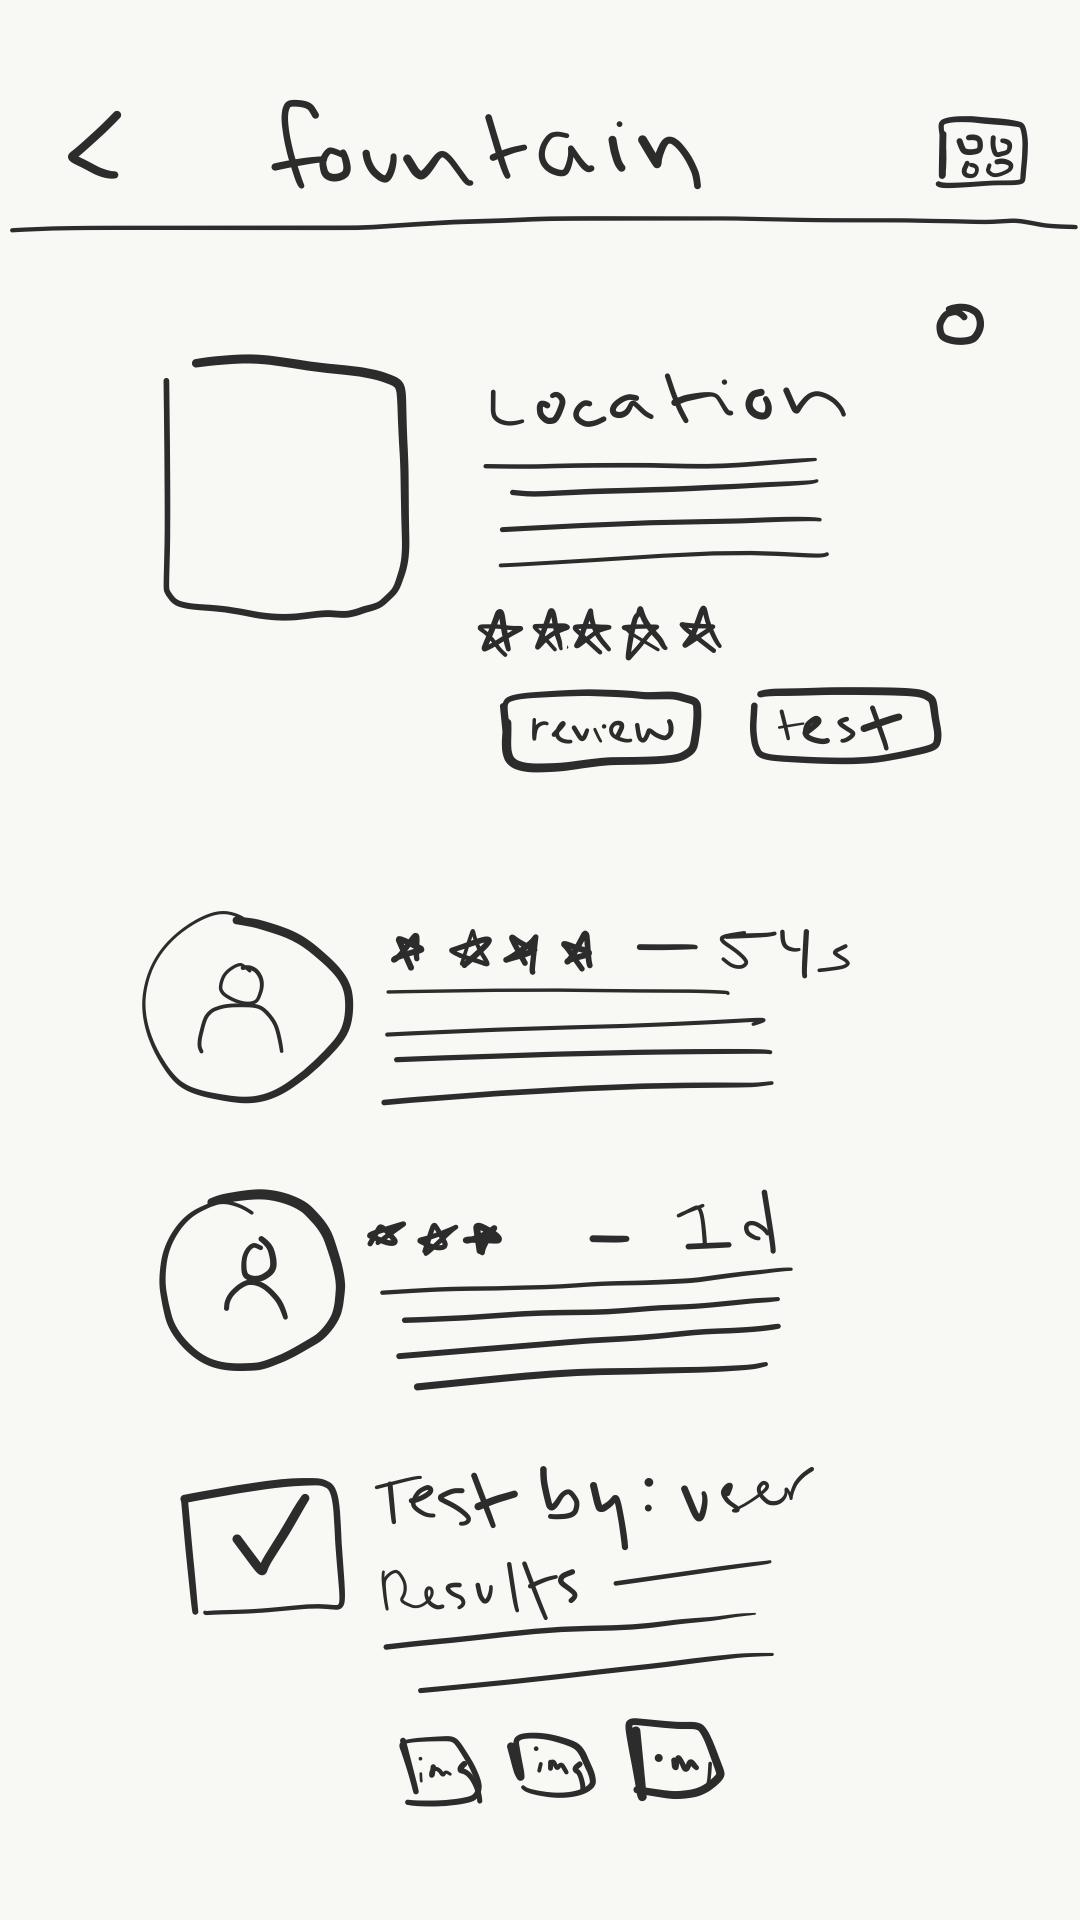 fountain
Location
review test
54s
1d
Test by: user
Results
img img im